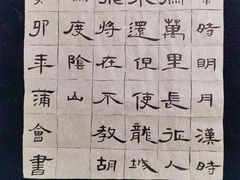 時明月漢時
萬里長征人
還但使龍城
將在不教胡
度陰山
卯年蒲會書